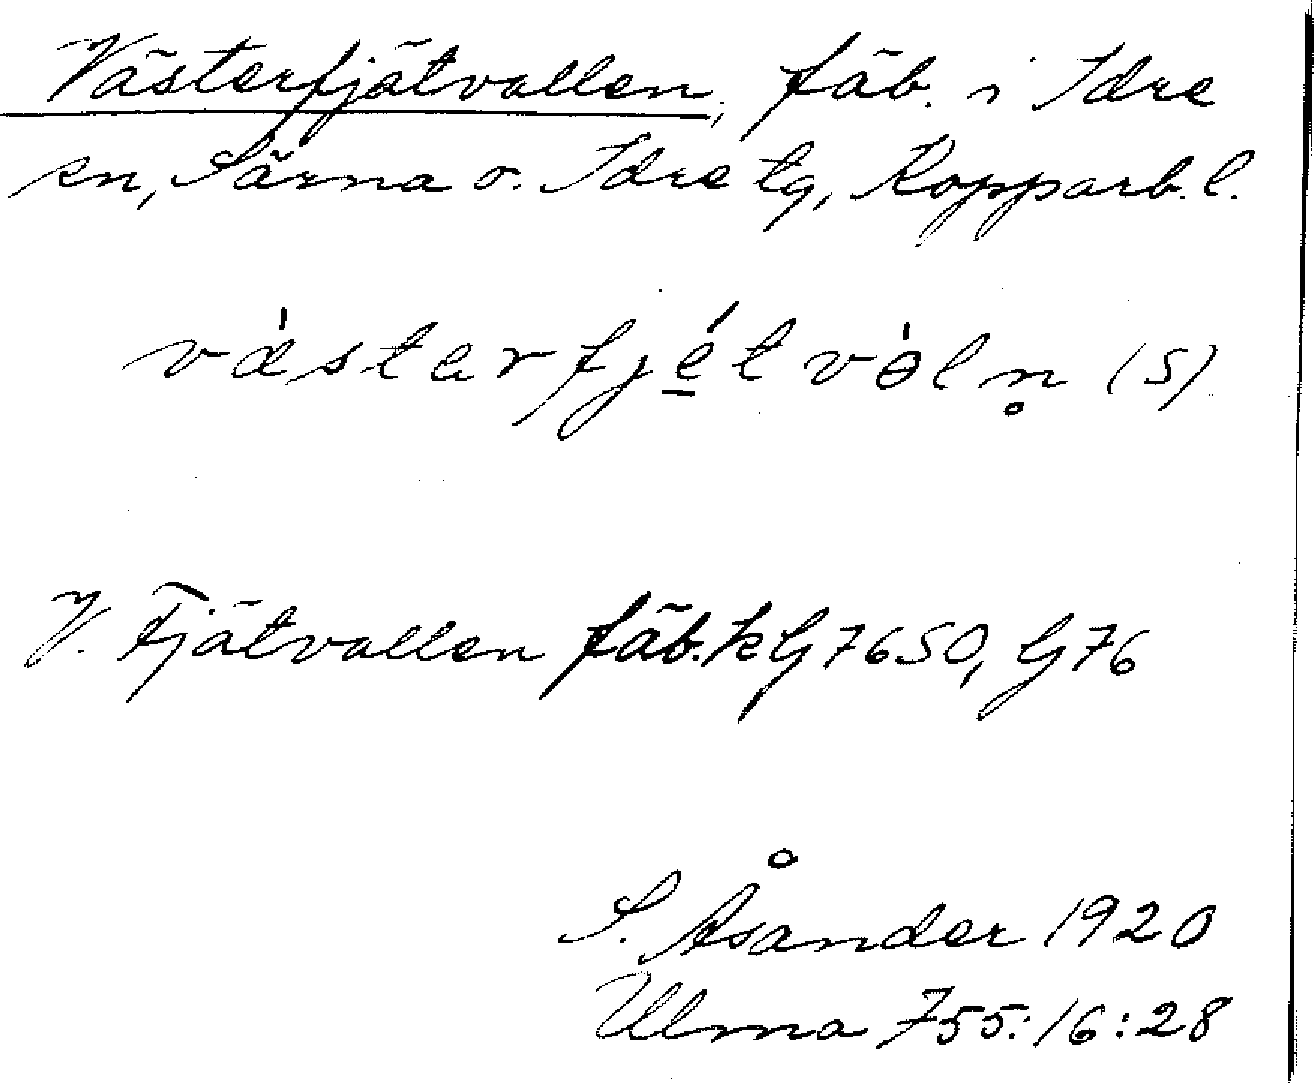 Västerfjätvallen, fäb. i Idre
sn, Särna o. Idre tg, Kopparb. l.
(S)
V. Fjätvallen fäb. k G 7650, G 76
S. Åsander 1920
Ulma 755:16:28